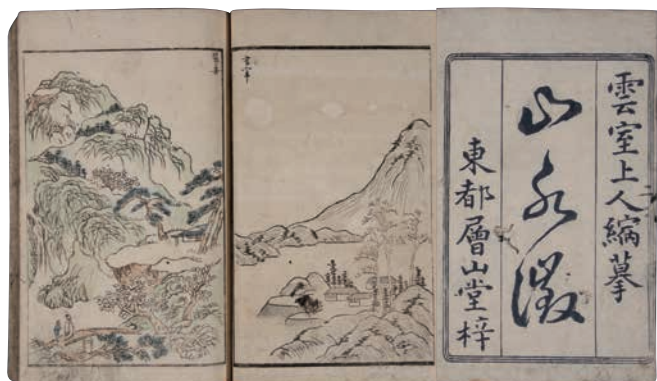 雲室上人編摹
山水徴
東都層山堂梓